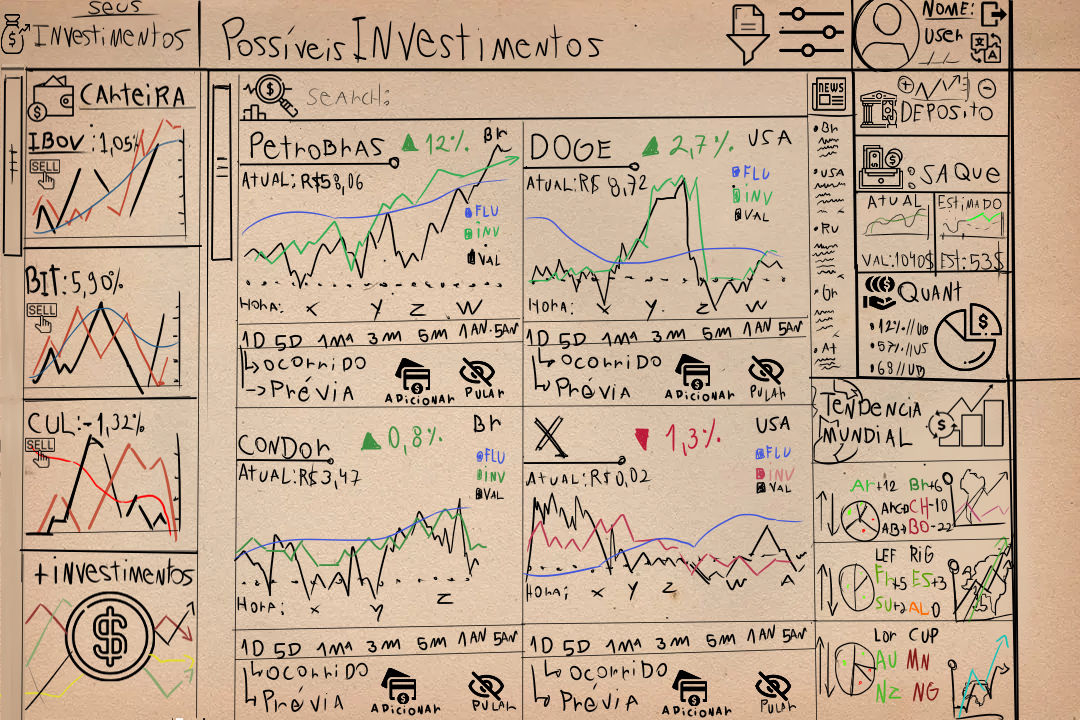 seus
Investimentos
Possíveis INvestimentos
NOME:
User
CArteirA
IBOV:1,05%
SELL
BIT:5,90%
SELL
CUL:-1,32%
SELL
+investimentos
SEARCH:
PetroBras
▲ 12%.
Br
ATUAL:R$58,06
FLU
INV
VAL
HOrA: X Y Z W
1D 5D 1Mª 3M 5M 1AN.5AN
OCOrriDO
Prévia
ADICIONAr
PULAr
DOGE
▲ 2,7%
USA
ATUAL:R$ 8,72
FLU
INV
VAL
HOrA: X Y. Z W
1D 5D 1Mª 3M 5M 1AN 5AN
OCOrriDO
Prévia
ADICIONAr
PULAr
CONDOr
▲ 0,8%.
Br
ATUAL:R$3,47
FLU
INV
VAL
HOrA; X Y Z
1D 5D 1Mª 3M 5M 1AN 5AN
OCOrriDO
Prévia
ADICIONAr
PULAr
X
▼ 1,3%.
USA
ATUAL:R$0,02
FLU
INV
VAL
HOrA; X Y Z W A
1D 5D 1Mª 3M 5M 1AN 5AN
OCOrriDO
Prévia
ADICIONAr
PULAr
NEWS
•Br
•USA
•RU
•Gr
•At
DEPOSITO
:SAQue
ATUAL
VAL:1040$
ESTIMADO
EST:53$
QUANT
•12%//UD
•57%.//US
•68//UD
TENDENCIA
MUNDIAL
Ar+12 Br+6
CH-10
BO-22
LEF RIG
Fr+5 ES+3
SU+2 AL0
LOr CUP
AU MN
NZ NG